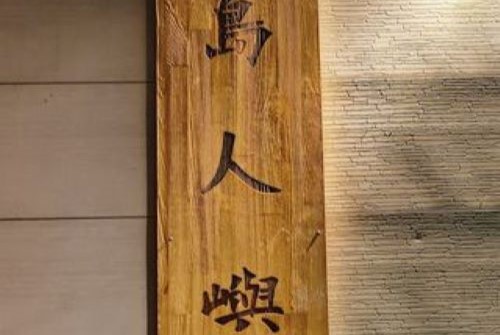 島人嶼